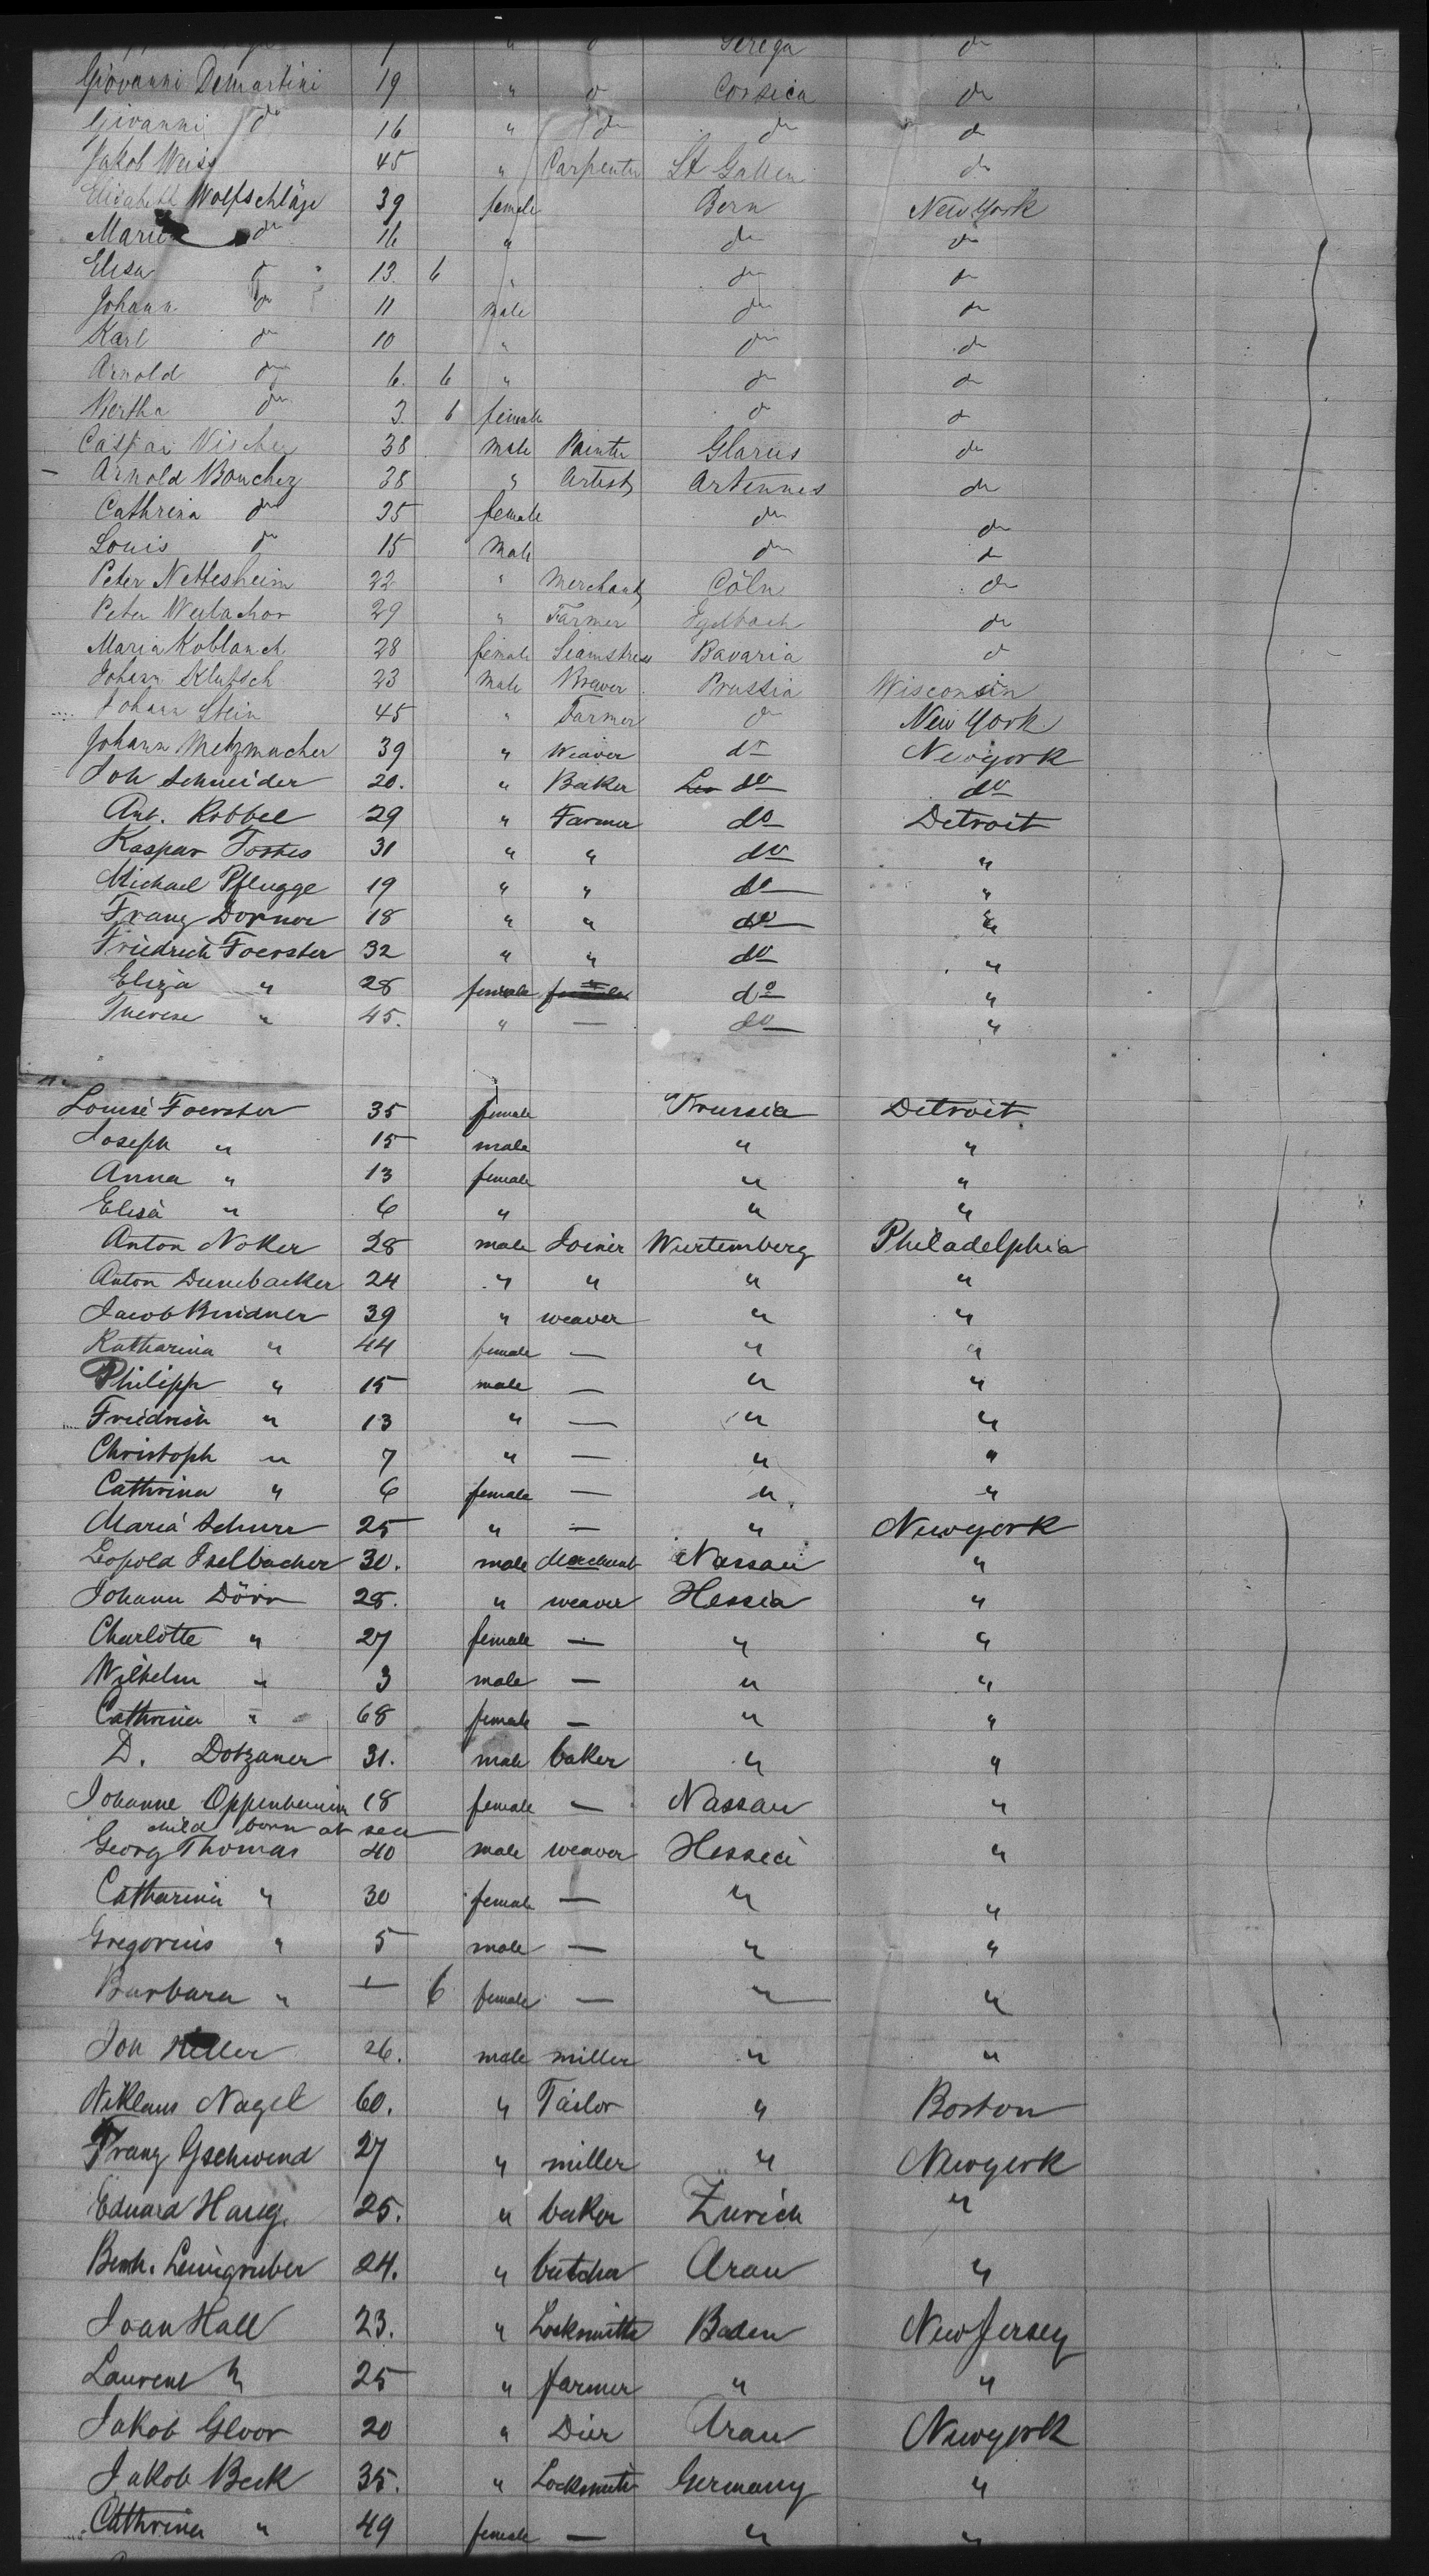 " d Serega do
Giovanni Demartini 19 " d Corsica do
Givanni do 16 " do do do
Jakob Weiss 45 " Carpenter St Gallen do
Elisabeth Wolfschläge 39 female Bern New York
Marie do 16 " do do
Elisa do 13. 6 " do do
Johann do 11 male do do
Karl do 10 " do do
Arnold do 6. 6 " do do
Bertha do 3. 6 female do do
Caspar Vischer 38 male Painter Glarus do
Arnold Bouchez 38 " Artist Artennes do
Cathrina do 35 female do do
Louis do 15 male do do
Peter Nettesheim 22 " Merchant Cöln do
Peter 29 " Farmer do
Maria Koblanck 28 female Seamstress Bavaria do
Johann Klutsch 23 male Braver Prussia Wisconsin
Johann Stein 45 " Farmer do New York
Johann Metzmacher 39 " Weaver do Newyork
Joh Schneider 20. " Baker do do
Ant. Robbel 29 " Farmer do Detroit
Kaspar Tostes 31 " " do "
Michael Pflugge 19 " " do "
Franz Dornor 18 " " do "
Friedrich Foerster 32 " " do "
Eliza " 28 female do "
Therese " 45. " — do "
Louise Foerster 35 female Prussia Detroit
Joseph " 15 male " "
Anna " 13 female " "
Elisa " 6 " " "
Anton Noker 28 male Joiner Wurtemberg Philadelphia
Anton Dunebacker 24 " " " "
Jacob Bridner 39 " weaver " "
Katharina " 44 female — " "
Philipp " 15 male — " "
Friedrich " 13 " — " "
Christoph " 7 " — " "
Cathrina " 6 female — " "
Maria Schurr 25 " — " Newyork
Leopold Iselbacher 30. male Merchant Nassau "
Johann Dörr 28. " weaver Hessia "
Charlotte " 27 female — " "
Wilhelm " 3 male — " "
Cathrina " 68 female — " "
D. Dotzauer 31. male baker " "
Johanne Oppenheim 18 female — Nassau "
child born at sea
Georg Thomas 40 male weaver Hessia "
Catharina " 30 female — " "
Gregorius " 5 male — " "
Barbara " — 6 female — " "
Joh Heller 26. male miller " "
Niklaus Nagel 60. " Tailor " Boston
Franz Gschwend 27 " miller " Newyork
Eduard Haug. 25. " baker Zurich "
Bernh. Leuigruber 24. " butcher Arau "
Joan Hall 23. " Locksmith Baden New Jersey
Laurenz " 25 " farmer " "
Jakob Gloor 20 " Dier Arau Newyork
Jakob Beck 35. " Locksmith Germany "
Cathrina " 49 female — " "